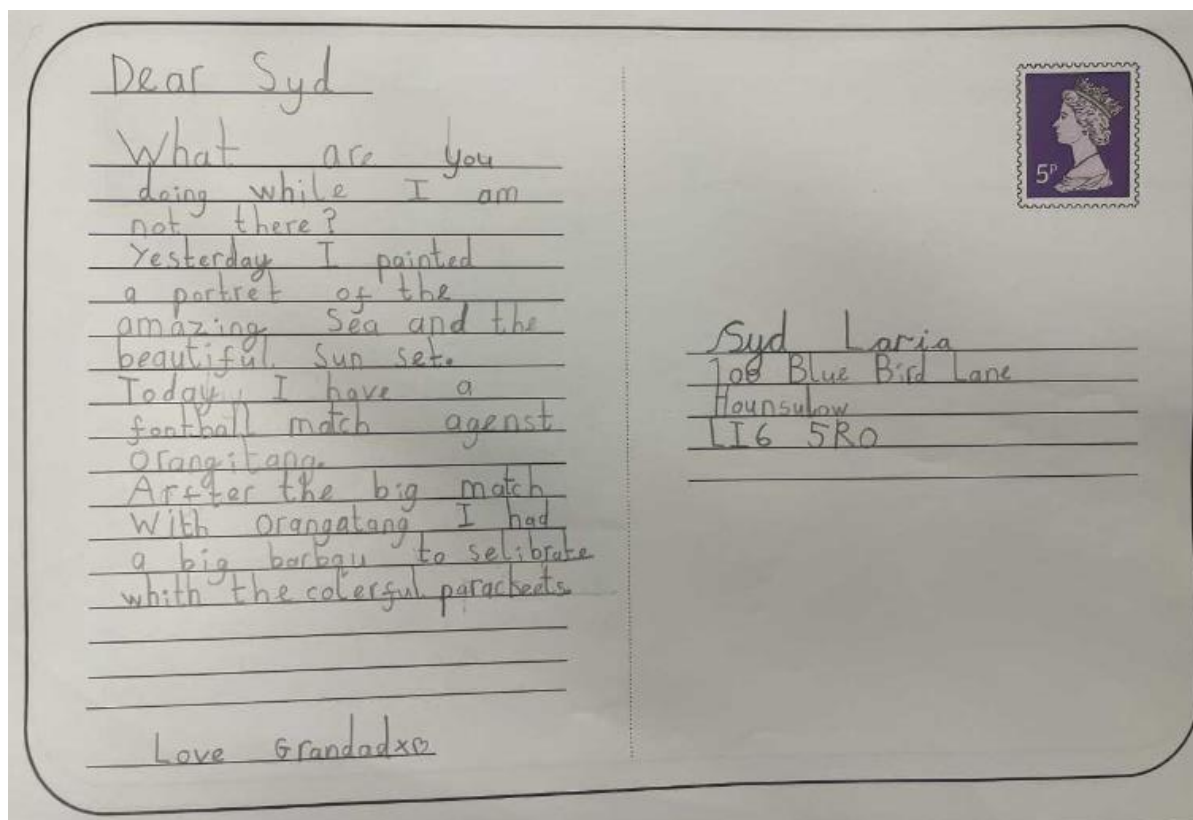 Dear Syd
What are you
doing while I am
not there?
Yesterday I painted
a portret of the
amazing Sea and the
beautiful Sun set.
Today, I have a
football match agenst
Orangitang.
Arfter the big match
With orangatang I had
a big barbqu to selibrate
whith the colerful paracheets.
Love Grandadx♡
5P
Syd Laria
108 Blue Bird Lane
Hounsulow
LI6 5RO